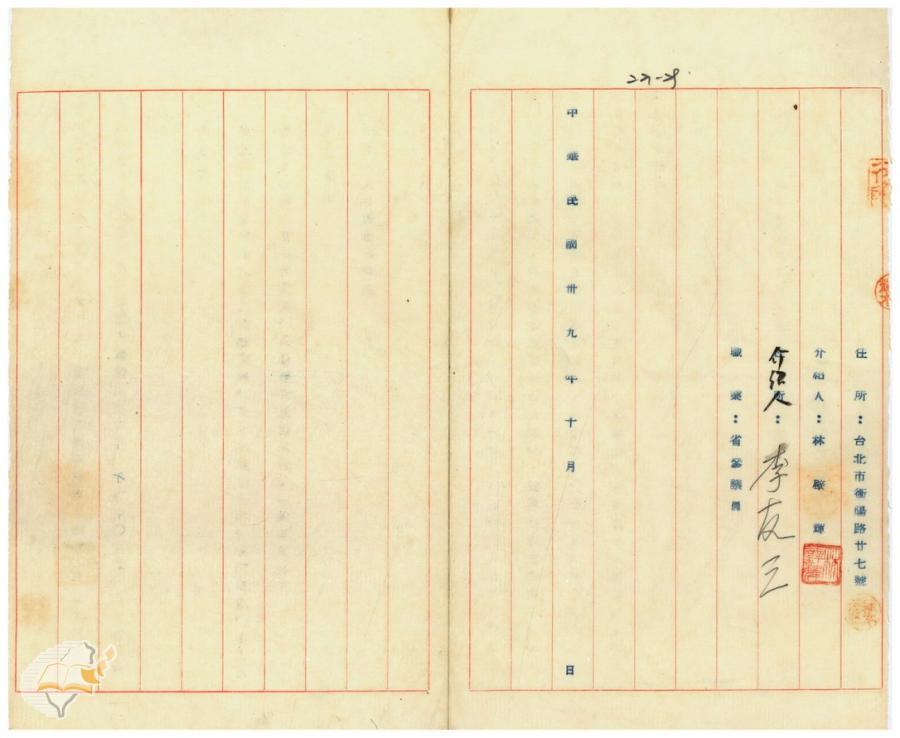 住所：台北市衡陽路廿七號
介紹人：林璧輝
介紹人
所：李友三
職業：省參議員
中華民國卅九年十月 日